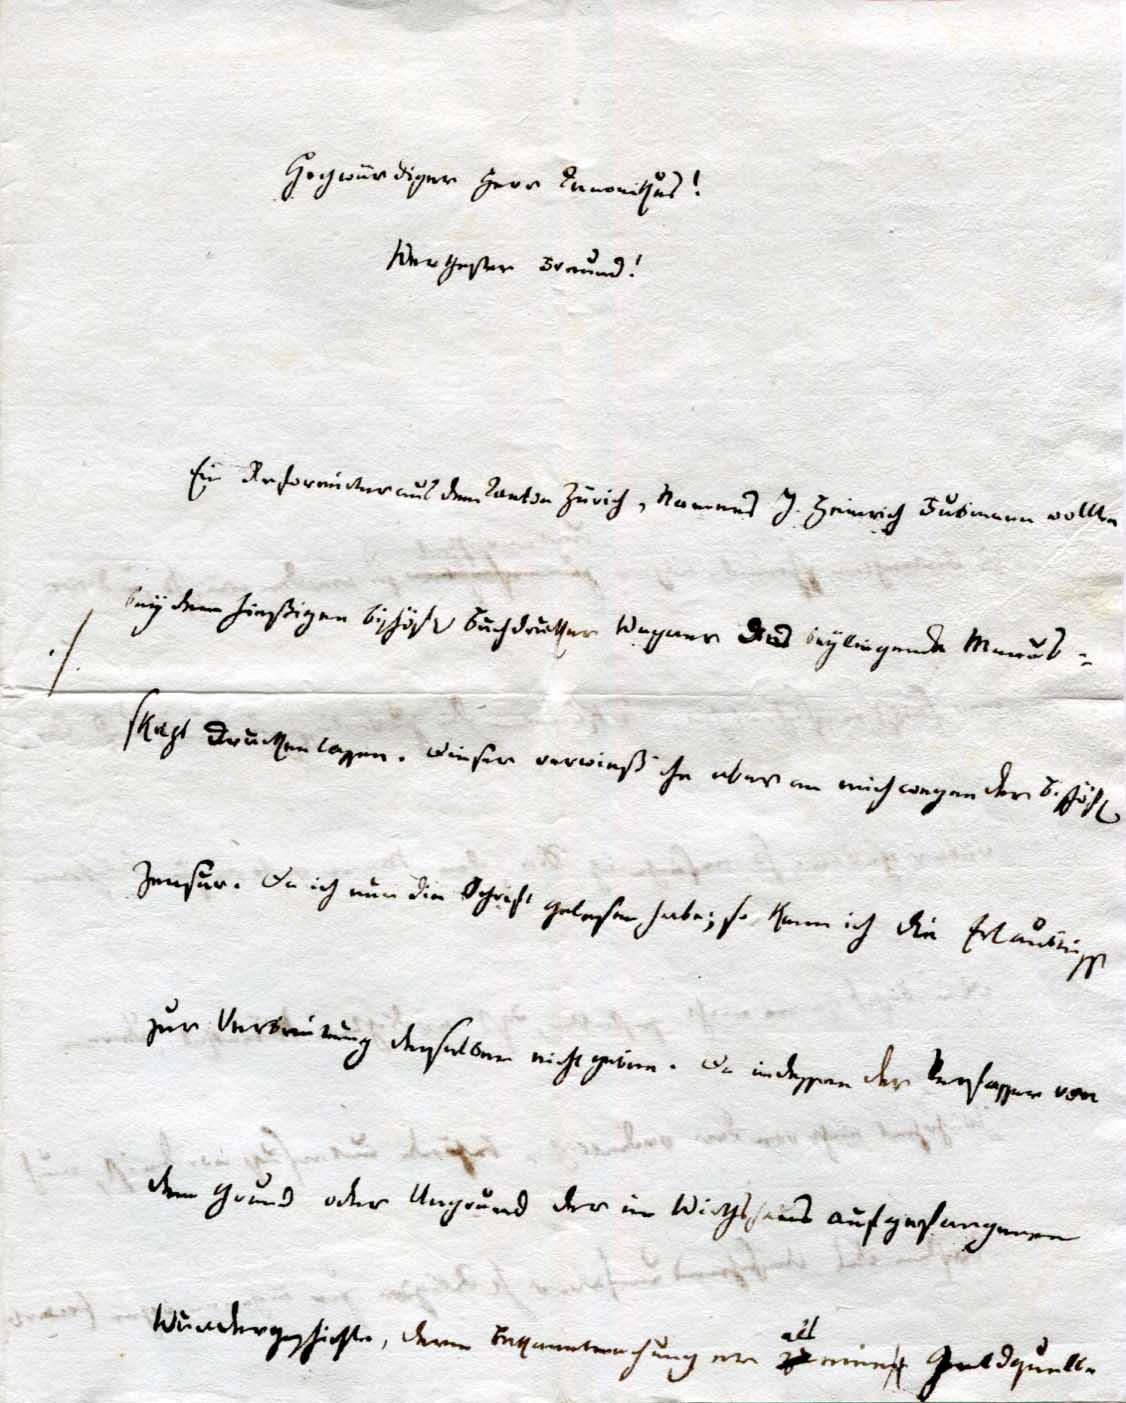 Hochwürdiger Herr Canonikus!
Werthester Freund!
Ein Reformirter aus dem Canton Zürich, Namens J. Heinrich Bußmann wollte
bey dem hiesigen bischöfl. Buchdrucker Wagner das beyliegende Manus=
skript drucken lassen. Dieser verwieß ihn aber an mich wegen der bischöfl.
Zensur. Da ich nun die Schrift gelesen habe; so kann ich die Erlaubniß
zur Verbreitung derselben nicht geben. Da indessen der Verfasser von
dem Grund oder Ungrund der im Wirthshaus aufgefangenen
Wundergeschichte, deren Bekanntmachung er als eine Geldquelle